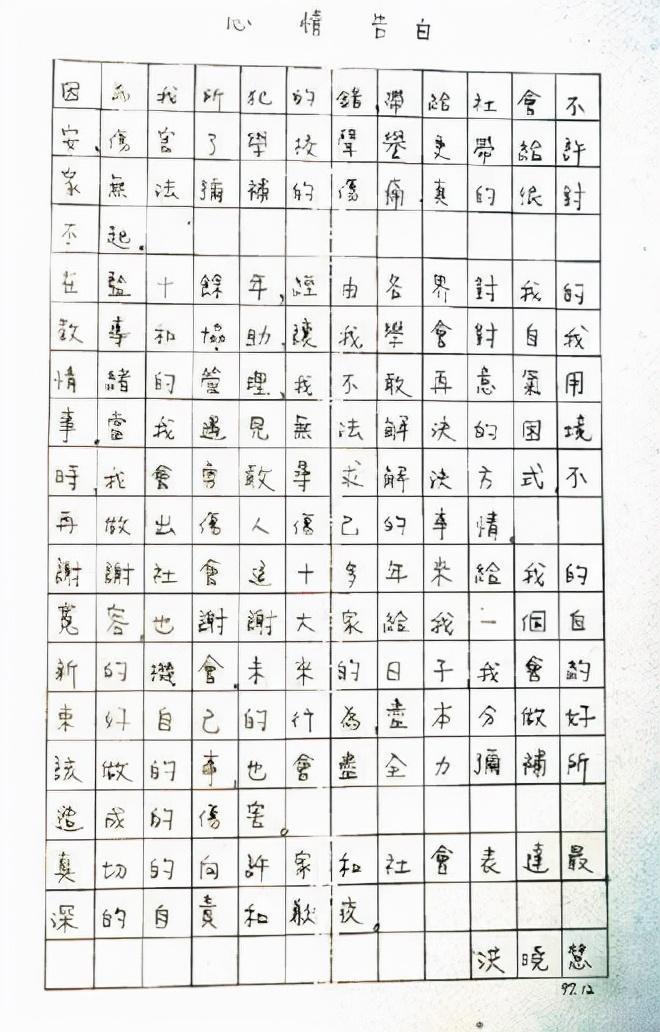 心情告白
因為我所犯的錯,帶給社會不
安,傷害了學校聲譽,更帶給許
家無法彌補的傷痛,真的很對
不起.
在監十餘年,經由各界對我的
教導和協助,讓我學會對自我
情緒的管理,我不敢再意氣用
事,當我遇見無法解決的困境
時,我會勇敢尋求解決方式,不
再做出傷人傷己的事情.
謝謝社會這十多年來給我的
寬容,也謝謝大家給我一個自
新的機會.未來的日子,我會約
束好自己的行為,盡本分做好
該做的事,也會盡全力彌補所
造成的傷害。
真切的向許家和社會表達最
深的自責和歉疚。
洪曉慧
97.12